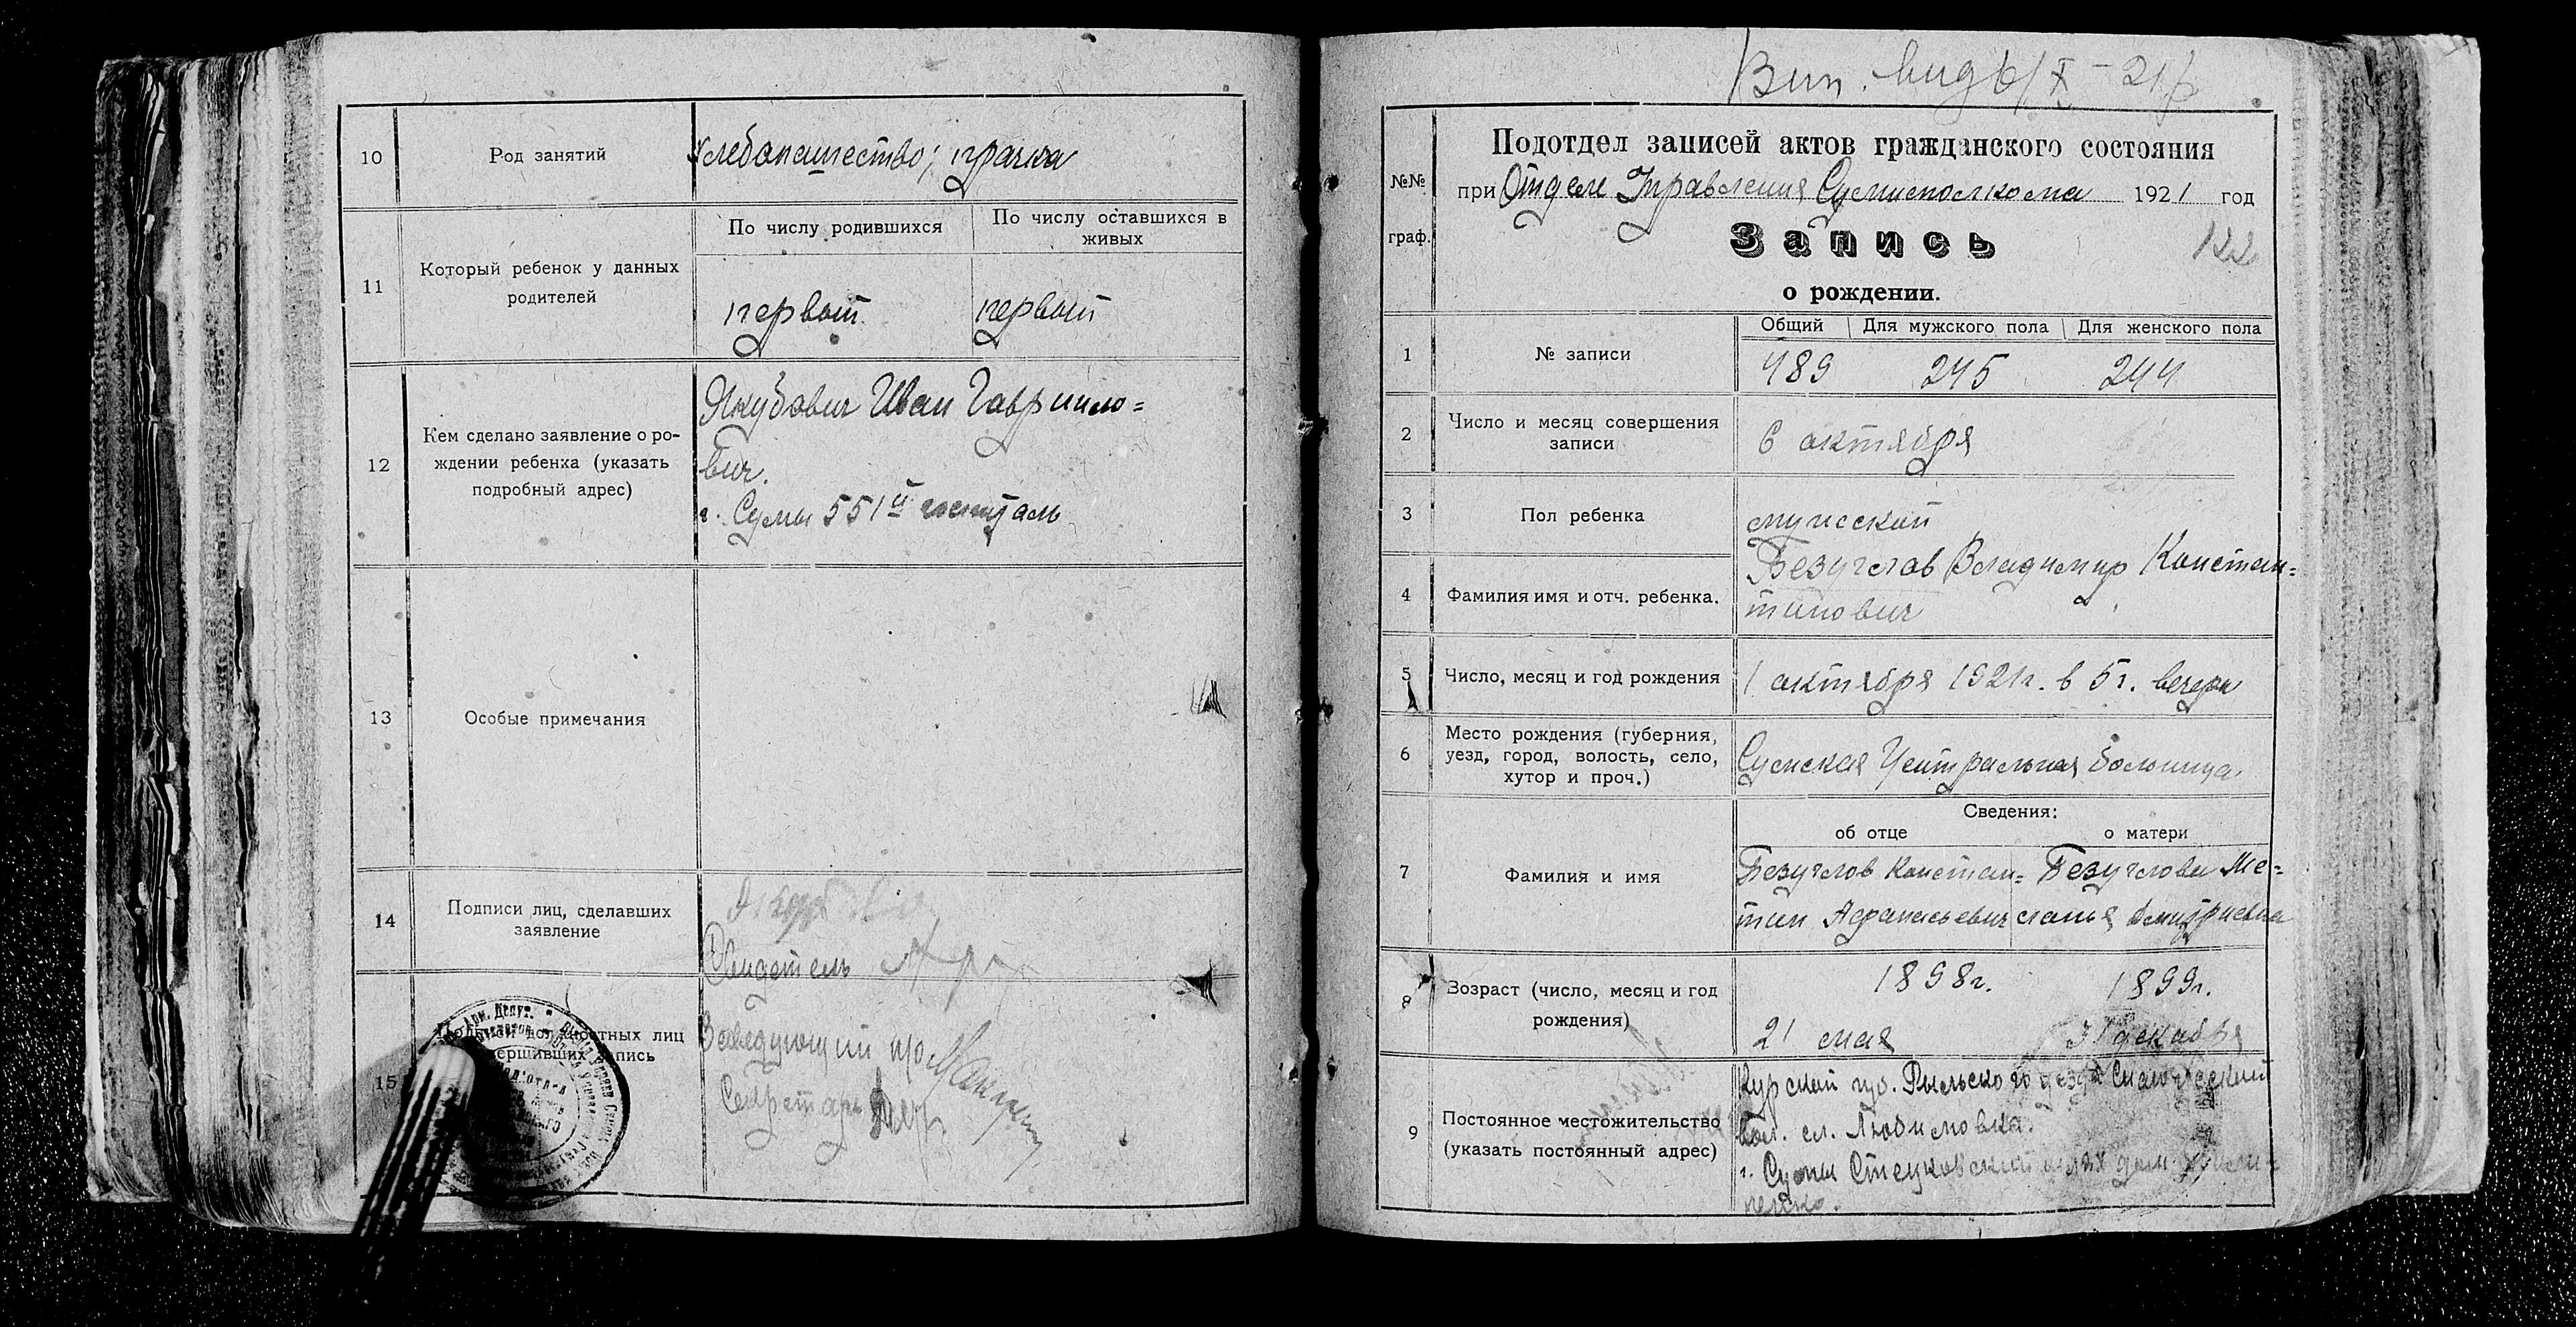 10 Род занятий хлебопашество; прачка
11 Который ребенок у данных родителей
По числу родившихся По числу оставшихся в живых
первый первый
12 Кем сделано заявление о ро-
ждении ребенка (указать
подробный адрес)
Якубович Иван Гаврило=
вич.
г. Сумы 551й госпиталь
13 Особые примечания
14 Подписи лиц, сделавших
заявление
Свидетель
15 Подписи должностных лиц
совершивших запись
Заведующий
Секретарь
Вип. 6/X - 21 р
Подотдел записей актов гражданского состояния
при Отделе Управления Сумисполкома 1921 год
№№ граф.
Запись
122
о рождении.
Общий Для мужского пола Для женского пола
1 № записи 489 245 244
2 Число и месяц совершения
записи
6 октября
3 Пол ребенка мужской
4 Фамилия имя и отч. ребенка.
Безуглов Владимир Констан=
тинович
5 Число, месяц и год рождения 1 октября 1921г. в 5 г. вечера
6 Место рождения (губерния,
уезд, город, волость, село,
хутор и проч.)
Сумская Центральная больница
Сведения:
об отце о матери
7 Фамилия и имя
Безуглов Констан= Безуглова Ме=
тин Афанасьевич ланья Дмитриевна
8 Возраст (число, месяц и год
рождения)
1898г. 1899г.
21 мая 31 декабря
9 Постоянное местожительство
(указать постоянный адрес)
Курской губ. Рыльского уезда
вол. сл. Любимовка.
г. Сумы Стецковский шлях дом